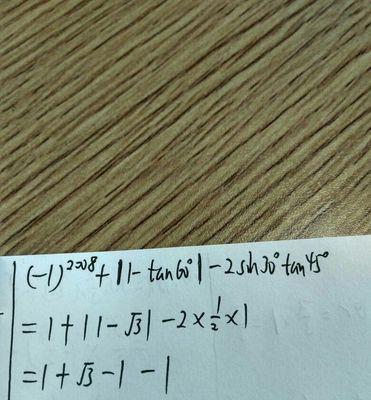 (-1)²⁰⁰⁸+|1-tan60°|-2sin30°tan45°
=1+|1-√3|-2×½×1
=1+√3-1-1